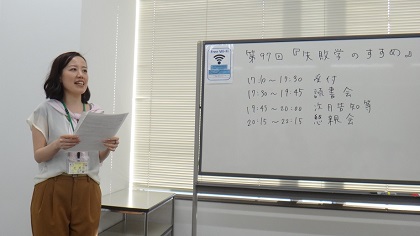 Free Wi-Fi
第97回『失敗学のすすめ』
17:10～17:30 受付
17:30～19:45 読書会
19:45～20:00 次月告知等
20:15～22:15 懇親会